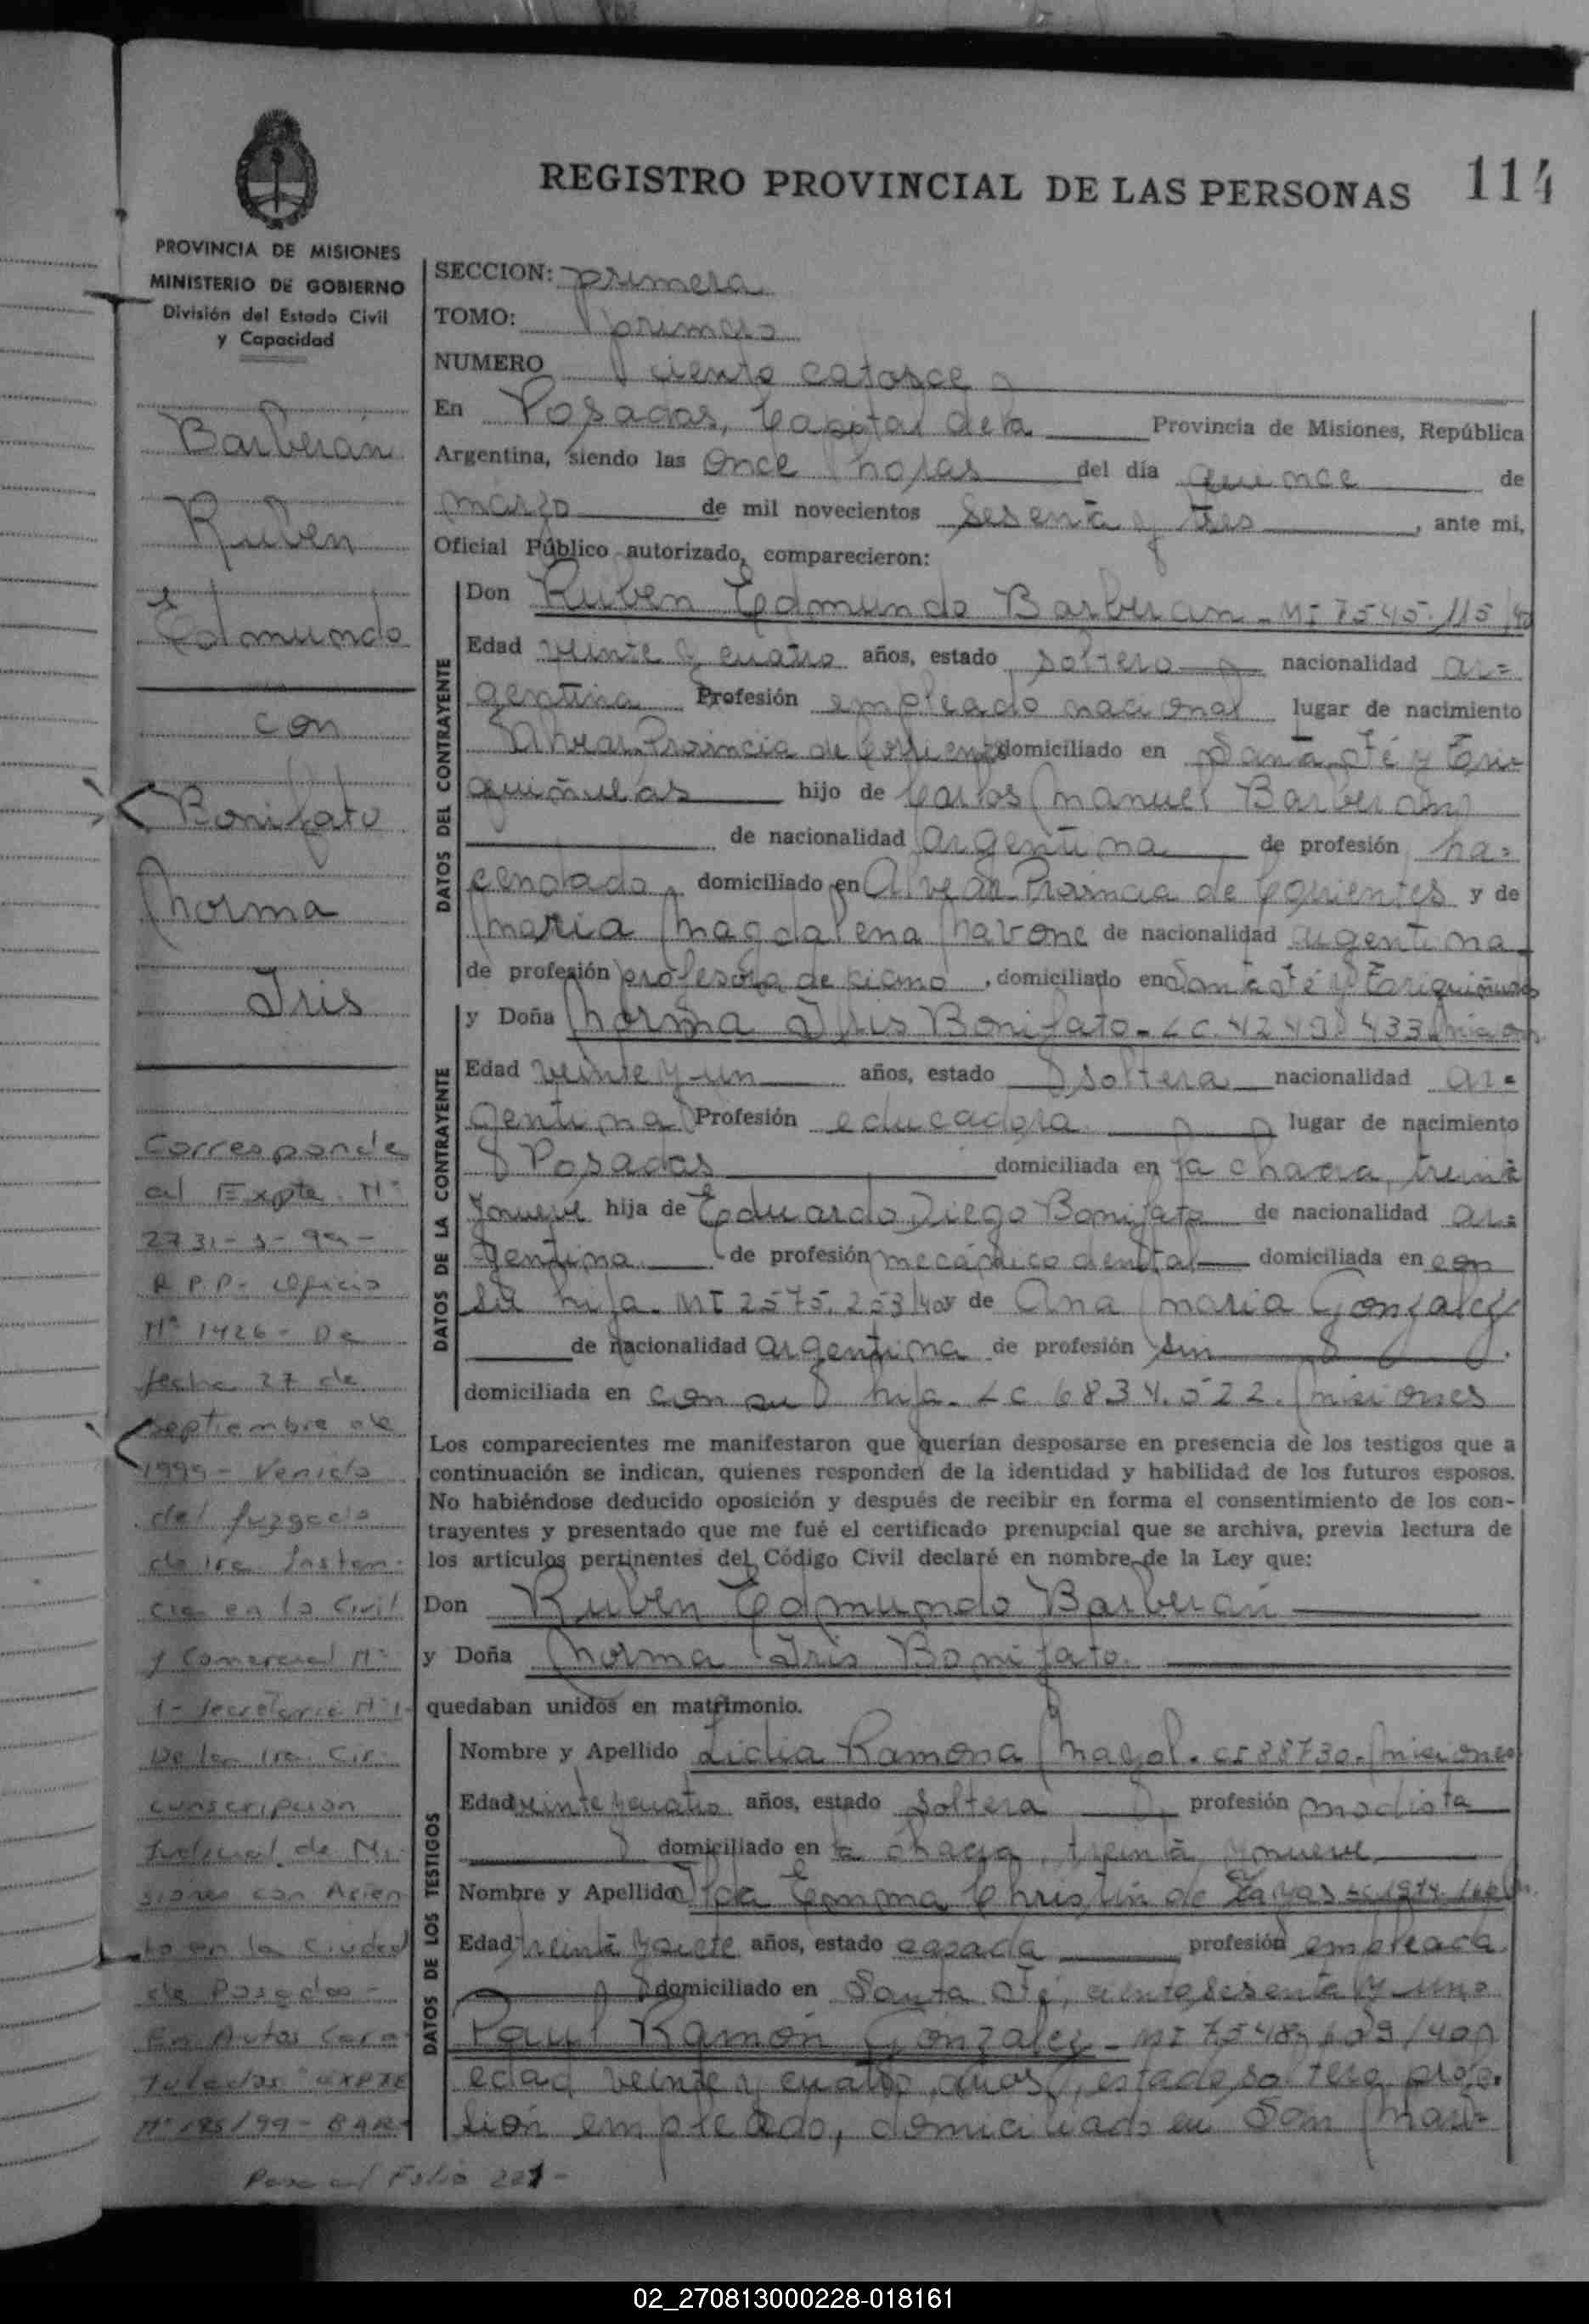 REGISTRO PROVINCIAL DE LAS PERSONAS 114
PROVINCIA DE MISIONES
MINISTERIO DE GOBIERNO
División del Estado Civil
y Capacidad
Barberán
Ruben
Edmundo
con
Bonifato
Norma
Iris
Corresponde
al Expte. Nº
2731-S-99-
R.P.P- Oficio
Nº 1426- De
fecha 27 de
septiembre de
1999- Venido
del Juzgado
de 1ra Instan-
cia en lo Civil
y Comercial Nº
1- Secretaria Nº 1-
De la 1ra. Cir-
cunscripcion
Judicial de Mi-
siones con Asien
to en la Ciudad
de Posadas-
En Autos Cara
tulados "EXPTE
Nº 185/99- BAR
Pasa al Folio 221-
SECCION: primera
TOMO: primero
NUMERO ciento catorce
En Posadas, Capital de la Provincia de Misiones, República
Argentina, siendo las once horas del día quince de
marzo de mil novecientos sesenta y tres, ante mi,
Oficial Público autorizado, comparecieron:
DATOS DEL CONTRAYENTE
Don Ruben Edmundo Barberan - MI 7545.115
Edad veinte y cuatro años, estado soltero nacionalidad ar=
gentina Profesión empleado nacional lugar de nacimiento
Alvear Provincia de Corrientes domiciliado en Santa Fé y Tari-
quiñuelas hijo de Carlos Manuel Barberan
de nacionalidad argentina de profesión ha=
cendado, domiciliado en Alvear Provincia de Corrientes y de
Maria Magdalena Navone de nacionalidad argentina
de profesión profesora de piano, domiciliado en Santa Fé y
DATOS DE LA CONTRAYENTE
y Doña Norma Iris Bonifato - LC.
Edad veinte y un años, estado soltera nacionalidad ar=
gentina Profesión educadora lugar de nacimiento
Posadas domiciliada en la chacra, treinta
y nueve hija de Eduardo Diego Bonifato de nacionalidad ar=
gentina de profesión mecánico dental domiciliada en con
su hija. MI 2575.253/40 y de Ana Maria Gonzalez
de nacionalidad argentina de profesión sin
domiciliada en con su hija. LC 6834.522. Misiones
Los comparecientes me manifestaron que querían desposarse en presencia de los testigos que a
continuación se indican, quienes responden de la identidad y habilidad de los futuros esposos.
No habiéndose deducido oposición y después de recibir en forma el consentimiento de los con-
trayentes y presentado que me fué el certificado prenupcial que se archiva, previa lectura de
los artículos pertinentes del Código Civil declaré en nombre de la Ley que:
Don Ruben Edmundo Barberán
y Doña Norma Iris Bonifato.
quedaban unidos en matrimonio.
DATOS DE LOS TESTIGOS
Nombre y Apellido Lidia Ramona CI 88730. Misiones
Edad veinte y cuatro años, estado soltera profesión modista
domiciliado en la chacra, treinta y nueve
Nombre y Apellido Ilda Emma Christin de Zayas
Edad treinta y siete años, estado casada profesión empleada
domiciliado en Santa Fé, ciento sesenta y uno
Raul Ramón Gonzalez - MI
edad veinte y cuatro, años, estado soltero, profe-
sión empleado, domiciliado en San Mar-
02_270813000228-018161